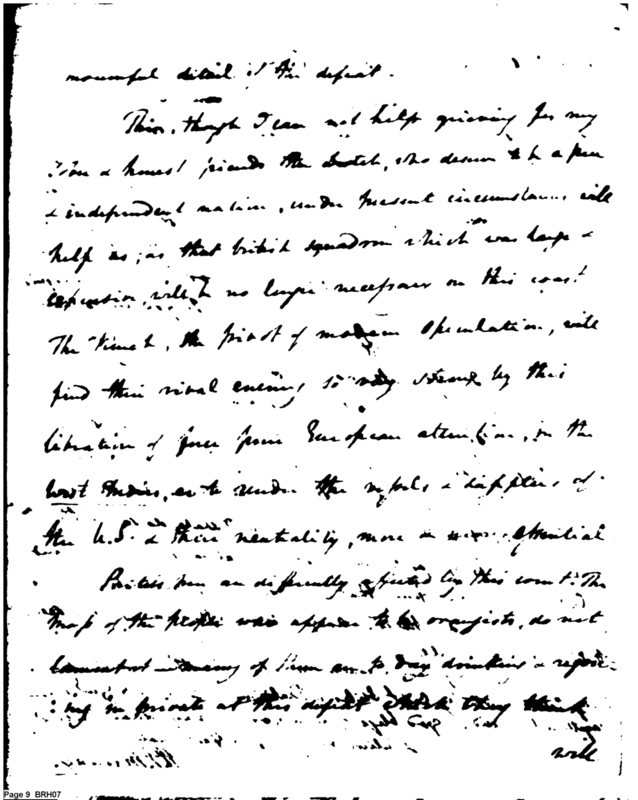 mournful detail of this defeat.
This, though I can not help grieving for my
& honest friends the Dutch, who deserve to be a free
& independent nation, under present circumstances will
help us; as that british squadron which was large &
expensive, will be no longer necessary on this coast
The french, the pivot of modern speculation, will
find their rival enemy so very strong by this
libration of force from European attention, on the
West Indies, as to render the & of
the U.S. & their neutrality, more & more essential
Parties here are differently affected by this event. The
mass of the people who appear to be orangists, do not
lament it & many of them are to day drinking & rejoic-
:ing in private at this defeat which they think
will
Page 9 BRH07